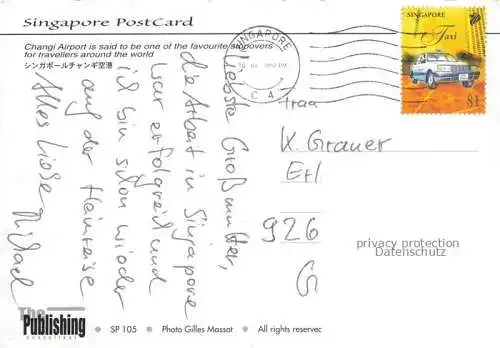 Singapore PostCard
Changi Airport is said to be one of the favourite stopovers
for travellers around the world
シンガポールチャンギ空港
SINGAPORE
C A
SINGAPORE
Taxi
$1
Liebste Großmutter,
die Arbeit in Singapore
war erfolgreich und
ich bin schon wieder
auf der Heimreise
Alles Liebe
Michael
Frau
K. Grauer
Erl
926
privacy protection
Datenschutz
The
Publishing
Consultant
SP 105 • Photo Gilles Massot • All rights reserved